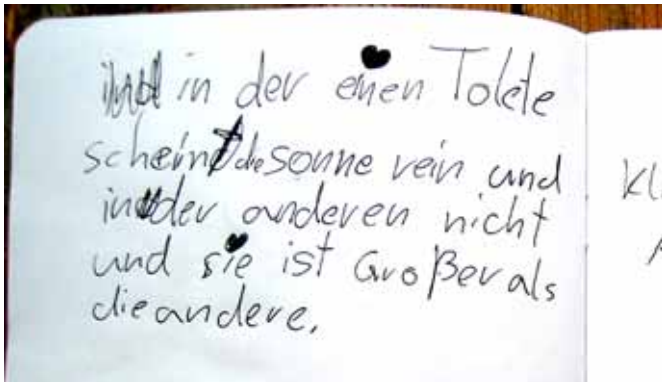 in der einen Tolete
scheint die sonne rein und
in der anderen nicht
und sie ist Großer als
die andere.